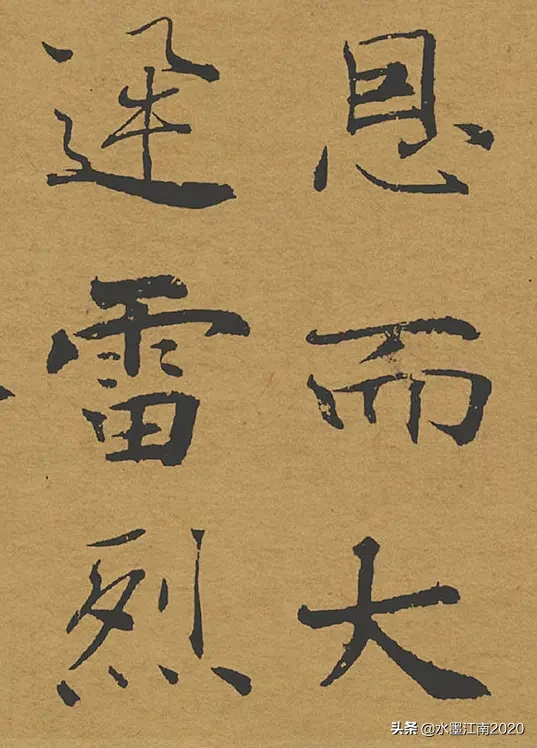 恩而大
迅雷烈
头条 @水墨江南2020